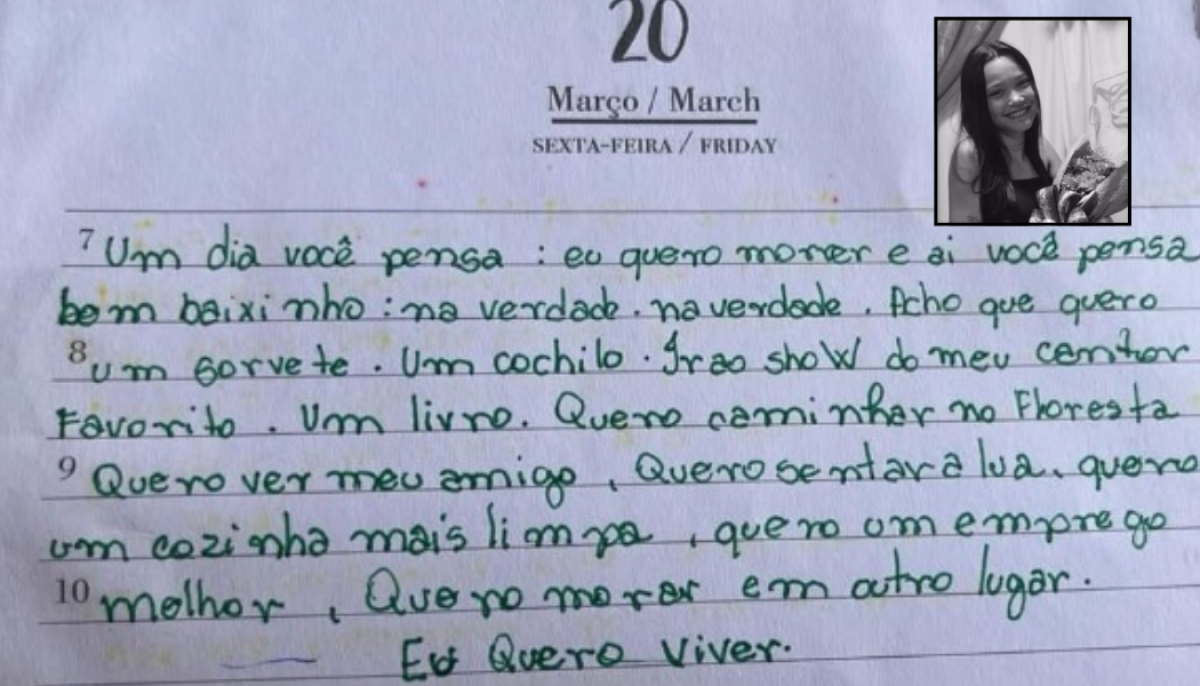 20
Março / March
SEXTA-FEIRA / FRIDAY
7 Um dia você pensa : eu quero morrer e ai você pensa
bem baixinho : na verdade . na verdade . Acho que quero
8 um sorvete . Um cochilo . Ir ao show do meu cantor
Favorito . Um livro . Quero caminhar na Floresta
9 Quero ver meu amigo , Quero sentar a lua , quero
um cozinha mais limpa , quero um emprego
10 melhor , Quero morar em outro lugar .
Eu Quero viver .